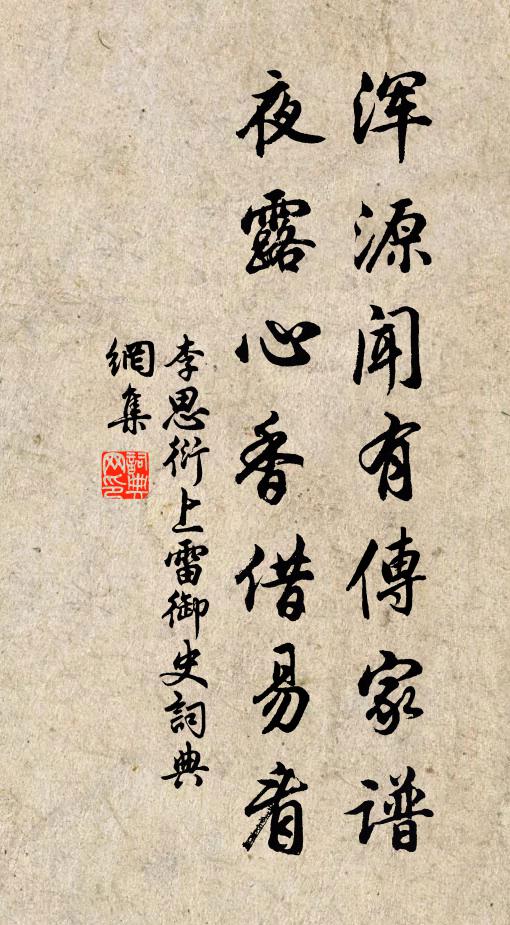 浑源闻有傳家谱
夜露心香借易看
李思衍上雷御史詞典
網集
詞典
网印